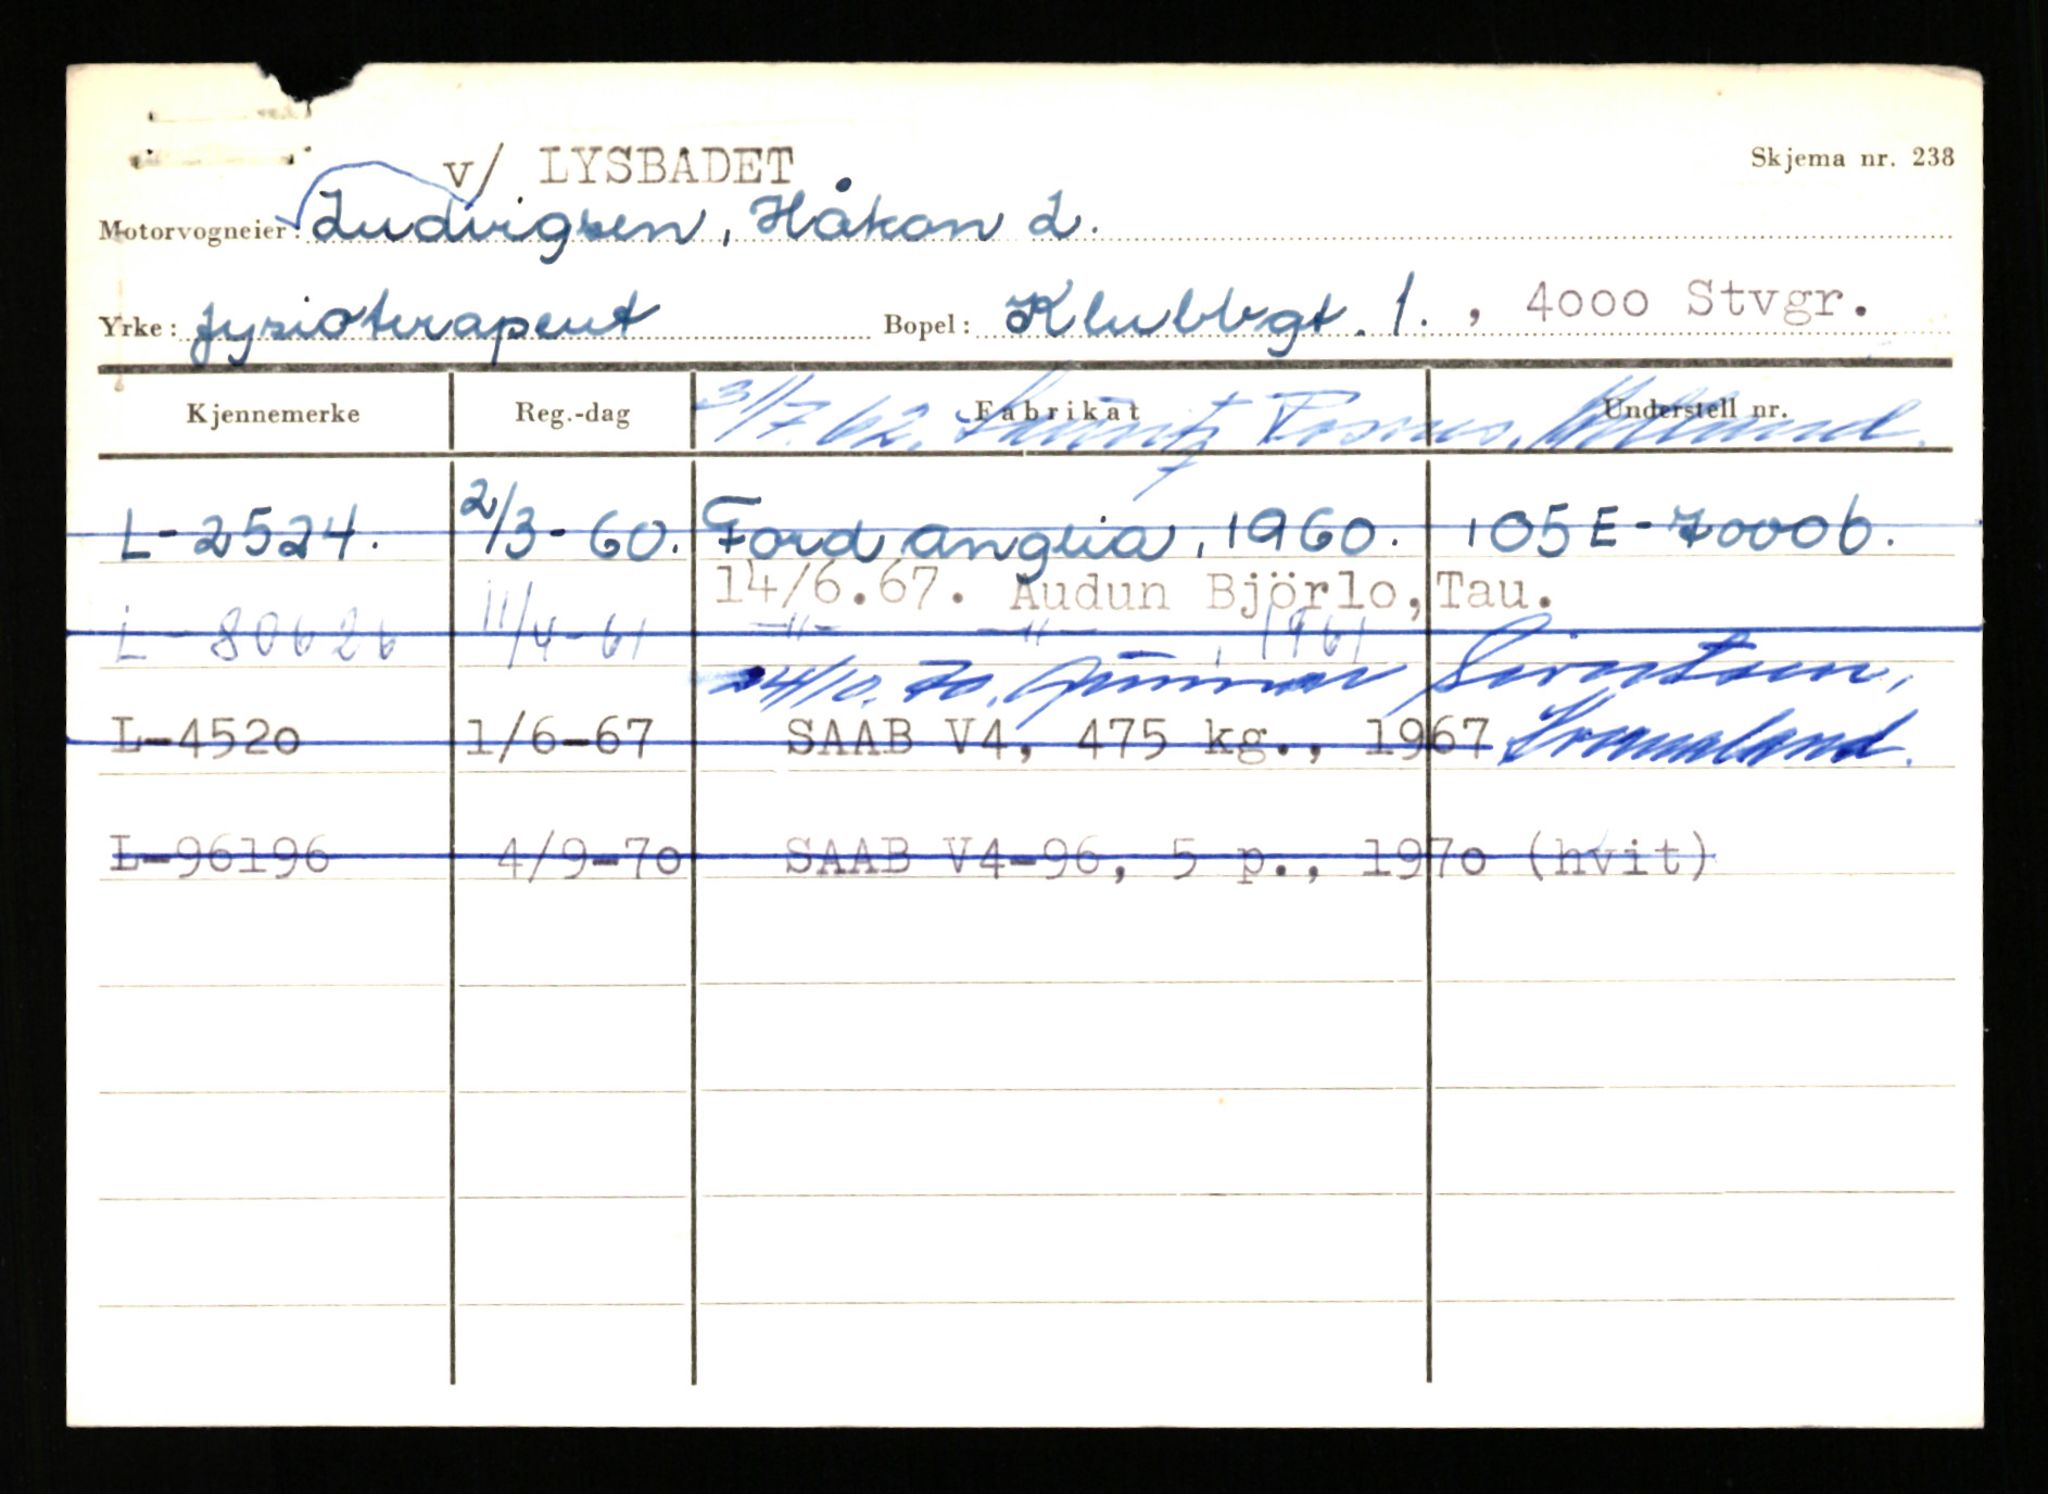 v/ LYSBADET
Skjema nr. 238
Motorvogneier: Ludvigsen, Håkon L.
Yrke: fysioterapeut Bopel: Klubbgt. 1., 4000 Stvgr.
Kjennemerke Reg.-dag Fabrikat Understell nr.
31/7.62.
L-2524. 2/3-60. Ford anglia, 1960. 105E-70006.
14/6.67. Audun Björlo, Tau.
L-80626 11/4-61 -"- -"-, 1961
24/10.70. Gunnar Sivertsen,
L-4520 1/6-67 SAAB V4, 475 kg., 1967
L-96196 4/9-70 SAAB V4-96, 5 p., 1970 (hvit)